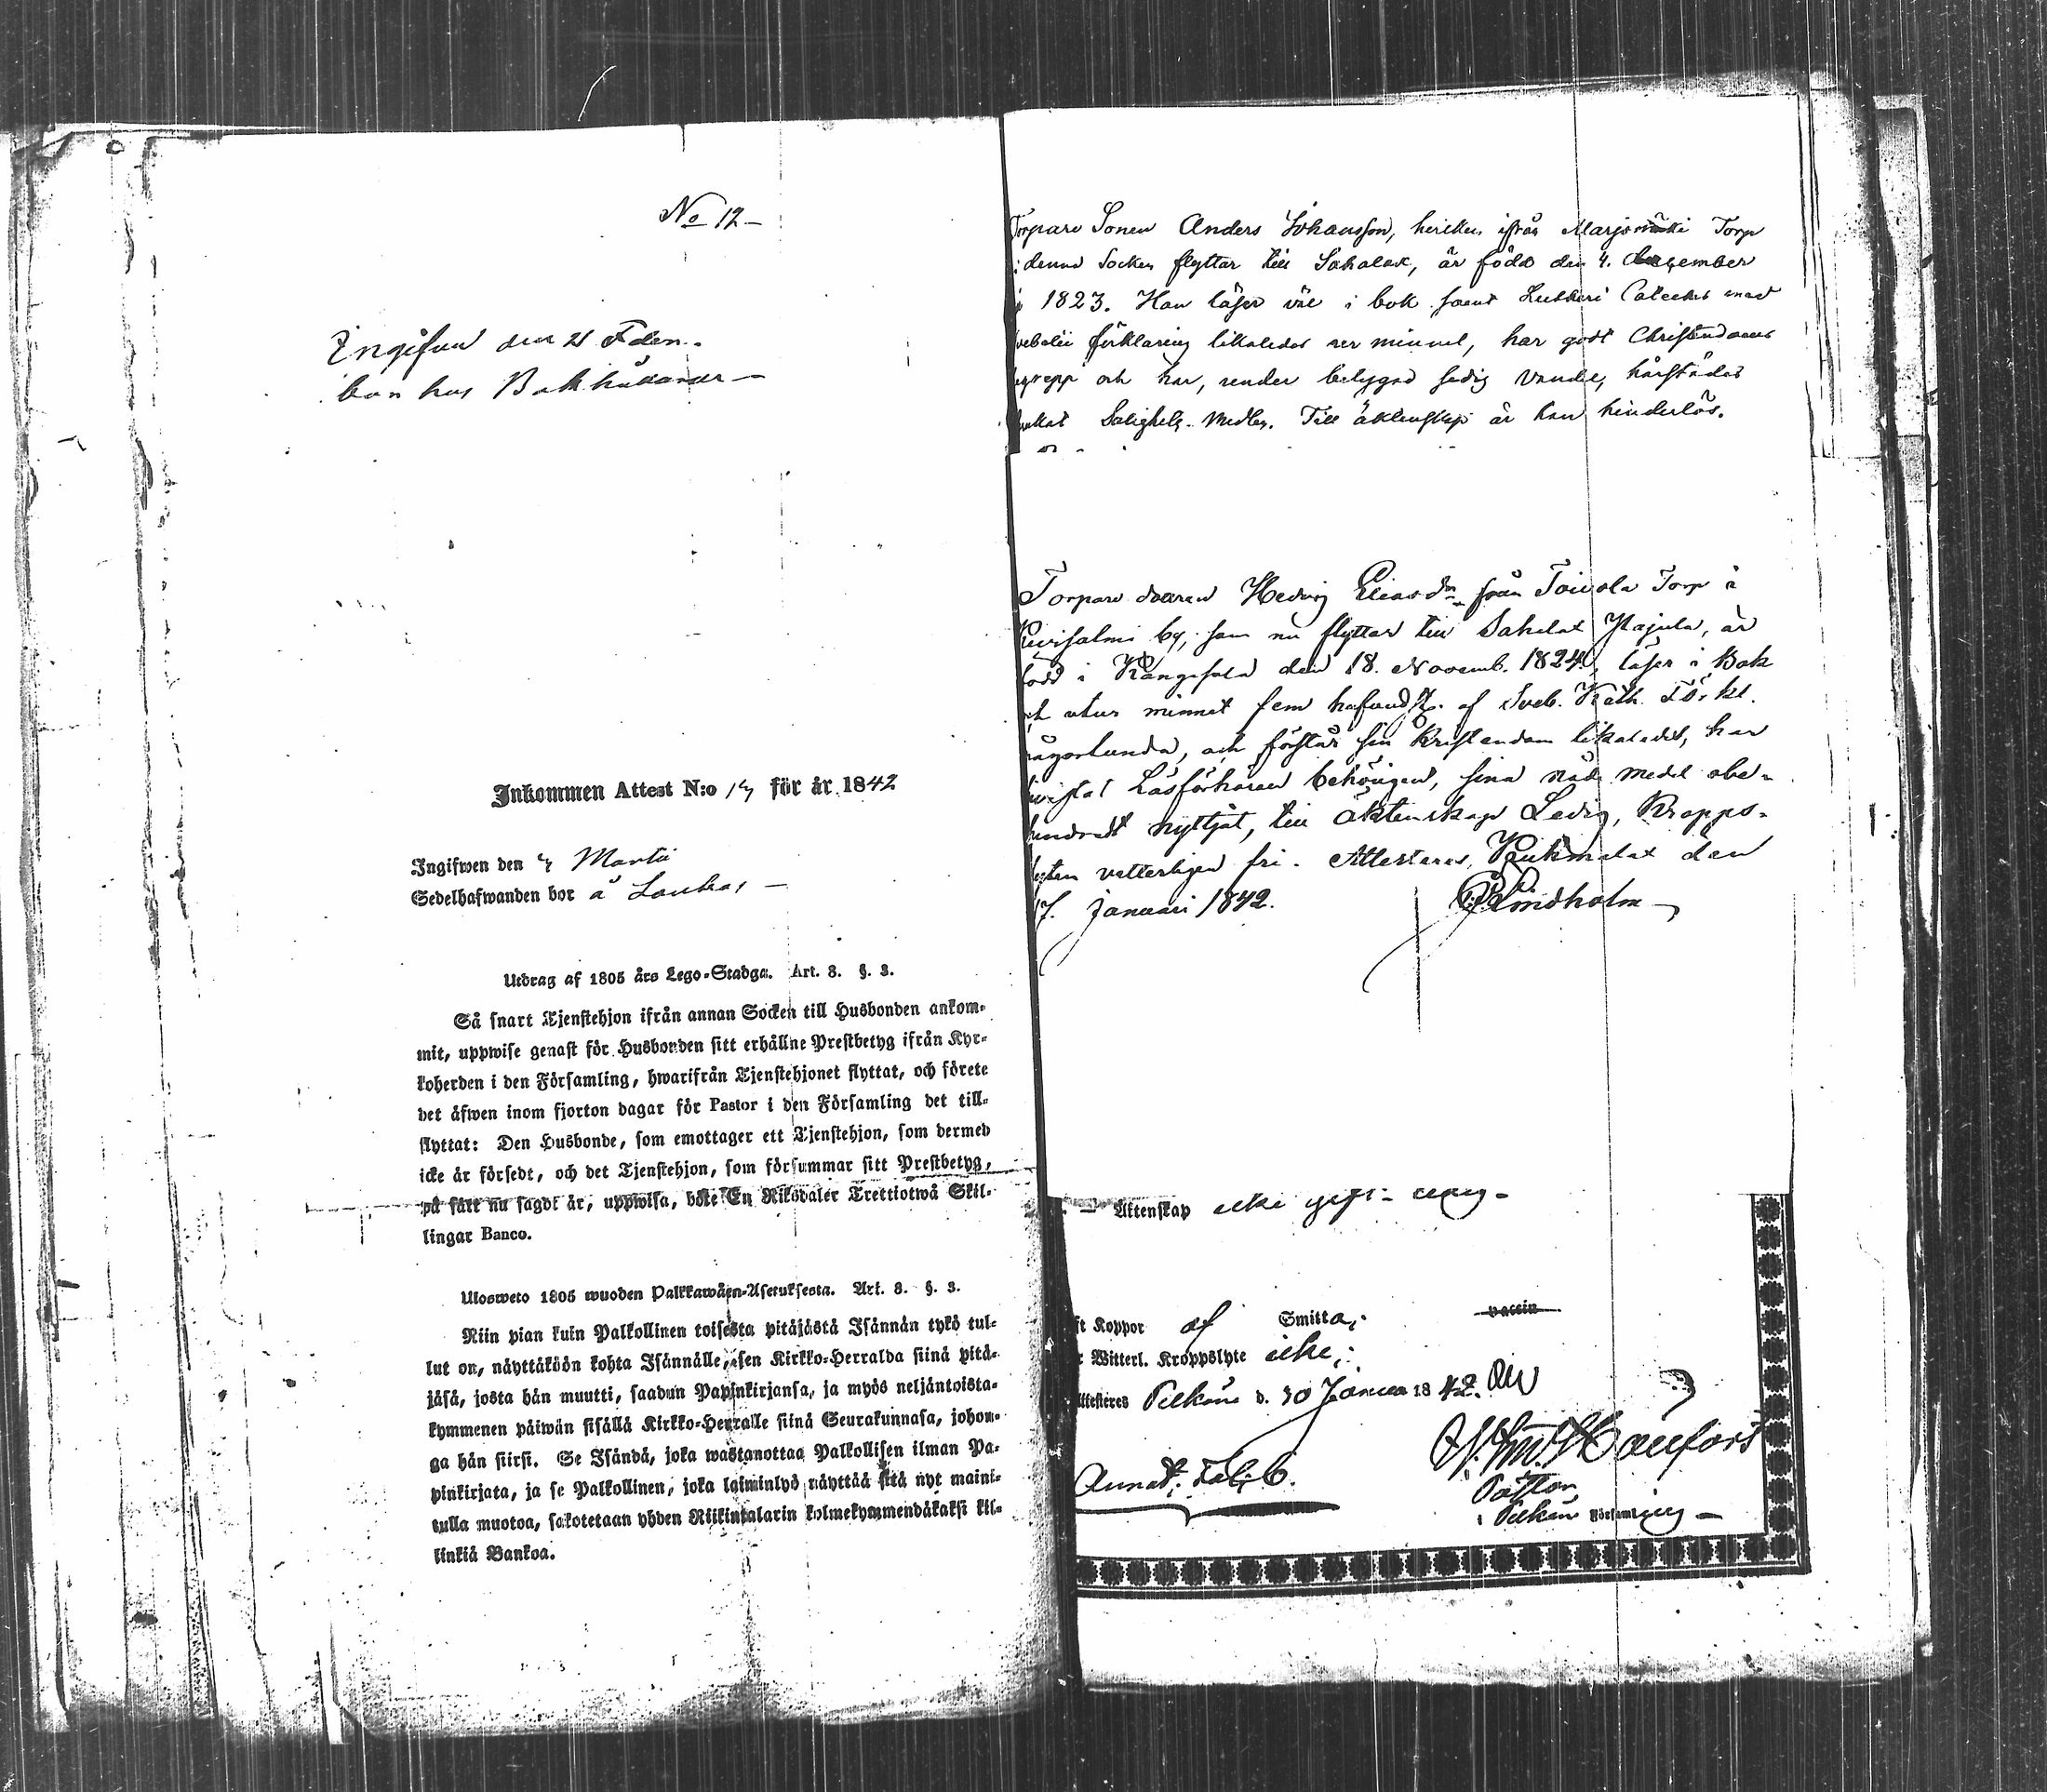 No 12 -
Ingifven den 21 Feb.
bor hos
Inkommen Attest N:o 14 för år 1842
Ingifwen den 4 Martii
Sedelhafwanden bor å Laukas -
Utdrag af 1805 års Lego-Stadga. Art. 8. §. 3.
Så snart Tjenstehjon ifrån annan Socken till Husbonden ankom-
mit, uppwise genast för Husbonden sitt erhållne Prestbetyg ifrån Kyr-
koherden i den Församling, hwarifrån Tjenstehjonet flyttat, och förete
det äfwen inom fjorton dagar för Pastor i den Församling det till-
flyttat: Den Husbonde, som emottager ett Tjenstehjon, som dermed
icke är försedt, och det Tjenstehjon, som försummar sitt Prestbetyg,
på sätt nu sagdt är, uppwisa, böte En Riksdaler Trettiotwå Skil-
lingar Banco.
Ulosweto 1805 wuoden Palkkawäen-Asetuksesta. Art. 8. §. 3.
Niin pian kuin Palkollinen toisesta pitäjästä Isännän tykö tul-
lut on, näyttäköön kohta Isännälle, sen Kirkko-Herralda siinä pitä-
jäsä, josta hän muutti, saadun Papinkirjansa, ja myös neljäntoista-
kymmenen päiwän sisällä Kirkko-Herralle siinä Seurakunnasa, johon-
ga hän siirsi. Se Isändä, joka wastanottaa Palkollisen ilman Pa-
pinkirjata, ja se Palkollinen, joka laiminlyö näyttää sitä nyt maini-
tulla muotoa, sakotetaan yhden Riikintalarin kolmekymmendäkaksi kil-
linkiä Bankoa.
Torpare Sonen Anders Johansson, hvilken ifrån Marjomäki Torp
i denna Socken flyttar till Sahalax, är född den 4. December
1823. Han läser väl i bok samt Lutheri Cateches med
Svebelii förklaring likaledes ur minnet, har godt Christendoms
begrepp och har, under betygad sedig vandel, härstädes
brukat Salighets-Medlen. Till äktenskap är han hinderlös.
Torpare dottren Hedvig Eliasdr. från Toivola Torp i
by, som nu flyttar till Sahalax Hajula, är
född i Kangasala den 18. Novemb. 1824, läser i Bok
och utur minnet fem hufvudst. af Sveb. Kath. Förkl.
någorlunda, och förstår sin kristendom likaledes, har
bevistat Läsförhören behörigen, sina nåde medel obe-
hindradt nyttjat, till äktenskap Ledig, Kropps-
lyten vetterligen fri. Attesteras, Kuhmalax den
17. Januari 1842. Lindholm
Äktenskap icke
Koppor af Smitta, vaccin
Witterl. Kroppslyte icke,
Attesteres Pelkäne d. 30 Januar 1842.
Annot. Tab. C.
Pastor
i Pelkäne Församling -